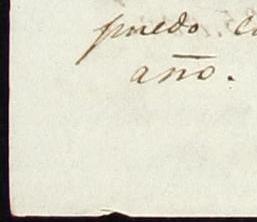 puedo
año.